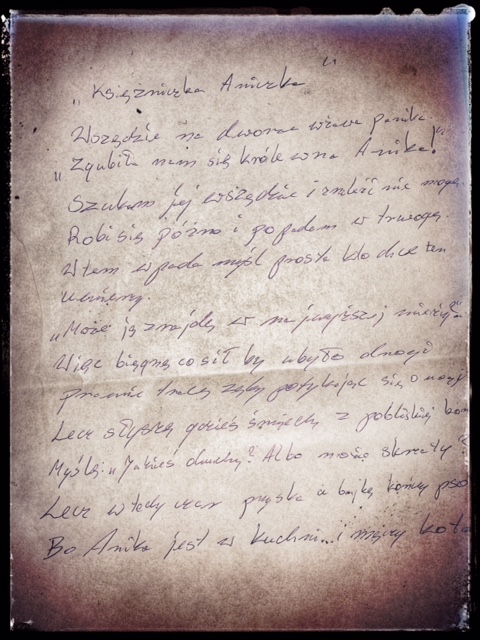 „Księżniczka Aniczka"
Wszędzie na dworze wrzawa panika
„Zgubiła nam się królewna Anika!"
Szukam jej wszędzie i znaleźć nie mogę.
Robi się późno i popadam w trwogę.
Wtem wpada myśl prosta kto chce ten
uwierzy.
„Może ją znajdę w najwyższej wieży?"
Więc biegnę co sił by ubyło drogi
prawie tracę zęby potykając się o
Lecz słyszę gdzieś śmiechy z pobliskiej
Myślę: „Jakieś duchy? Albo może skrzaty?"
Lecz wtedy czar pryska a bajkę kończy
Bo Anika jest w kuchni... i męczy kota